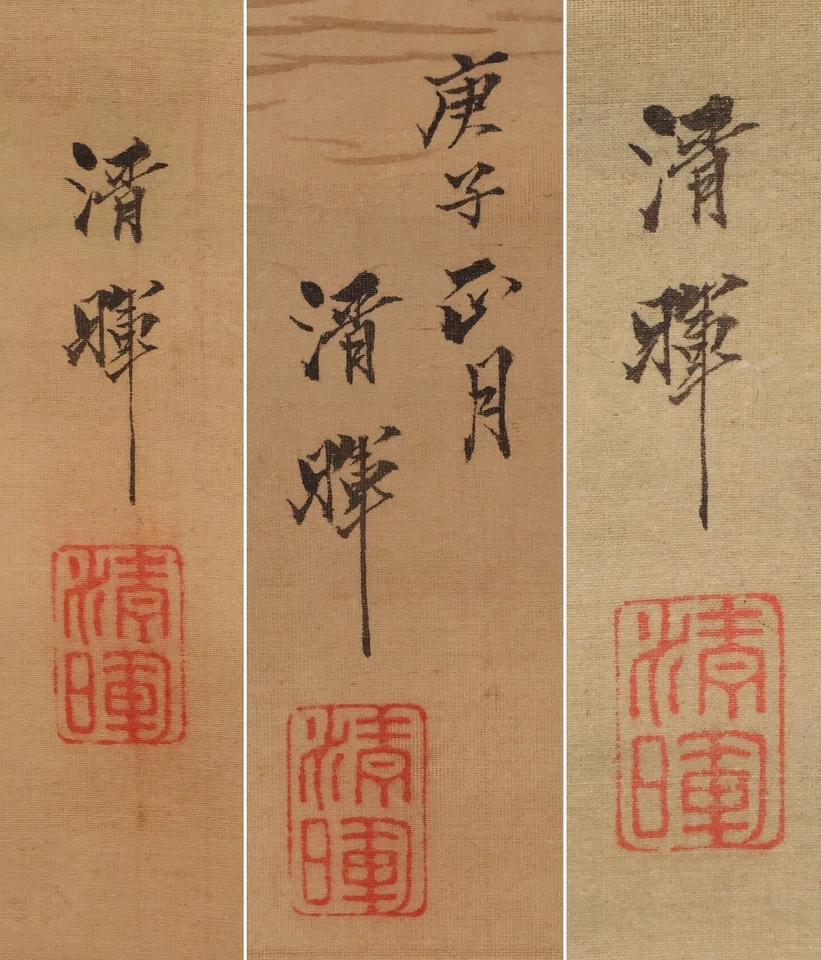 清暉
清暉
庚子正月
清暉
清暉
清暉
清暉